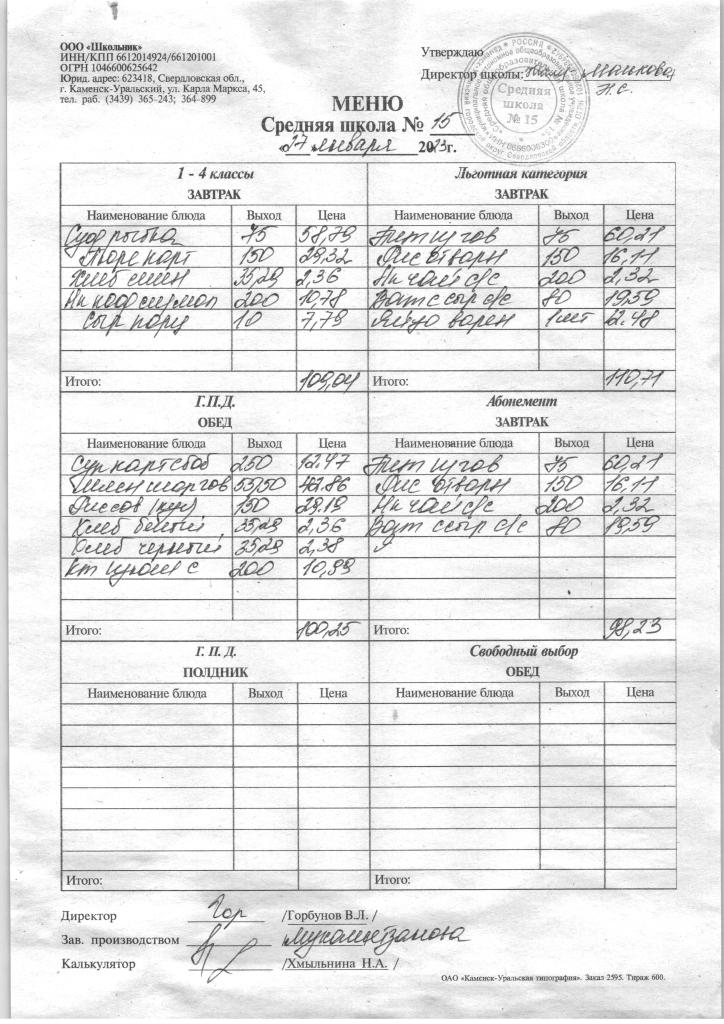 ООО «Школьник»
ИНН/КПП 6612014924/661201001
ОГРН 1046600625642
Юрид. адрес: 623418, Свердловская обл.,
г. Каменск-Уральский, ул. Карла Маркса, 45,
тел. раб. (3439) 365-243; 364-899
Утверждаю
Директор школы: Манкова
Н.С.
Средняя
школа
№ 15
РОССИЯ
МЕНЮ
Средняя школа № 15
27 января 2023г.
1 - 4 классы
ЗАВТРАК
Наименование блюда Выход Цена
Суфрыбка 75 58,79
Пюре карт 150 29,32
Хлеб пшен 35,29 2,36
Нп кофсцмол 200 10,78
Сыр порц 10 7,79
Итого: 109,04
Льготная категория
ЗАВТРАК
Наименование блюда Выход Цена
75 60,21
Рис отварн 150 16,11
Нп чай с/с 200 2,32
Бат с сыр с/с 80 19,59
Яйцо варен 1шт 12.48
Итого: 110,71
Г.П.Д.
ОБЕД
Наименование блюда Выход Цена
Суп карт сбоб 250 12.47
55/50 42.86
150 29.19
Хлеб белый 35,29 2,36
Хлеб черный 35,29 2,38
200 10,99
Итого: 100,25
Абонемент
ЗАВТРАК
Наименование блюда Выход Цена
75 60,21
Рис отварн 150 16,11
Нп чай с/с 200 2,32
Бат ссыр с/с 80 19,59
Я
Итого: 98,23
Г. П. Д.
ПОЛДНИК
Наименование блюда Выход Цена
Итого:
Свободный выбор
ОБЕД
Наименование блюда Выход Цена
Итого:
Директор Гор /Горбунов В.Л. /
Зав. производством
Калькулятор /Хмыльнина Н.А. /
ОАО «Каменск-Уральская типография». Заказ 2595. Тираж 600.